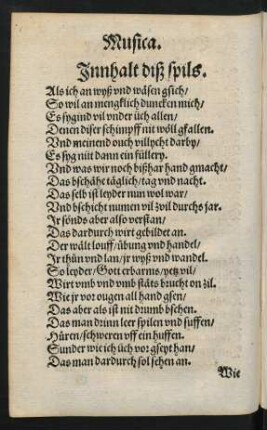 Musica.
Innhalt diß spils.
Als ich an wyß vnd wäsen gsich/
So wil an mengklich duncken mich/
Es sygind vil vnder üch allen/
Denen diser schimpff nit wöll gfallen.
Vnd meinend ouch villycht darby/
Es syg nüt dann ein füllery.
Vnd was wir noch bißhar hand gmacht/
Das bschähe täglich/ tag vnd nacht.
Das selb ist leyder nun wol war/
Vnd bschicht numen vil zvil durchs jar.
Ir sönds aber also verstan/
Das dardurch wirt gebildet an.
Der wält louff/ übung vnd handel/
Ir thün vnd lan/ jr wyß vnd wandel.
So leyder/ Gott erbarms/ yetz vil/
Wirt vmb vnd vmb stäts brucht on zil.
Wie jr vor ougen all hand gsen/
Das aber als ist nit drumb bsehen.
Das man drinn leer spilen vnd suffen/
Hüren/ schweren vff ein huffen.
Sunder wie ich üch vor gseyt han/
Das man dardurch sol sehen an.
Wie